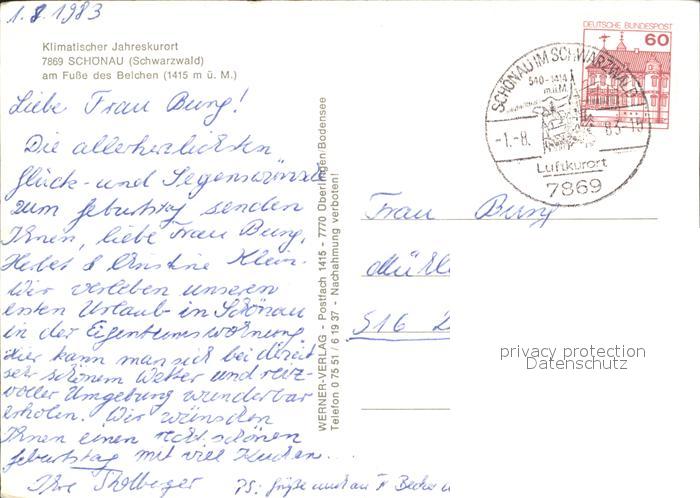 1.8.1983
Klimatischer Jahreskurort
7869 SCHÖNAU (Schwarzwald)
am Fuße des Belchen (1415 m ü. M.)
Liebe Frau Burg!
Die allerherzlichsten
Glück- und Segenswünsche
zum Geburtstag senden
Ihnen, liebe Frau Burg,
& Christine Klein.
Wir verleben unseren
ersten Urlaub in Schönau
in der Eigentumswohnung.
Hier kann man sich bei derzeit
sehr schönem Wetter und reiz-
voller Umgebung wunderbar
erholen. Wir wünschen
Ihnen einen recht schönen
Geburtstag mit viel Kuchen...
Ihre
PS: Grüße auch an
WERNER-VERLAG - Postfach 1415 - 7770 Überlingen/Bodensee
Telefon 0 75 51 / 6 19 37 - Nachahmung verboten!
DEUTSCHE BUNDESPOST
60
SCHÖNAU IM SCHWARZWALD
540-1414
m.ü.M.
-1.-8. 83-15
Luftkurort
7869
Frau Burg
516
privacy protection
Datenschutz